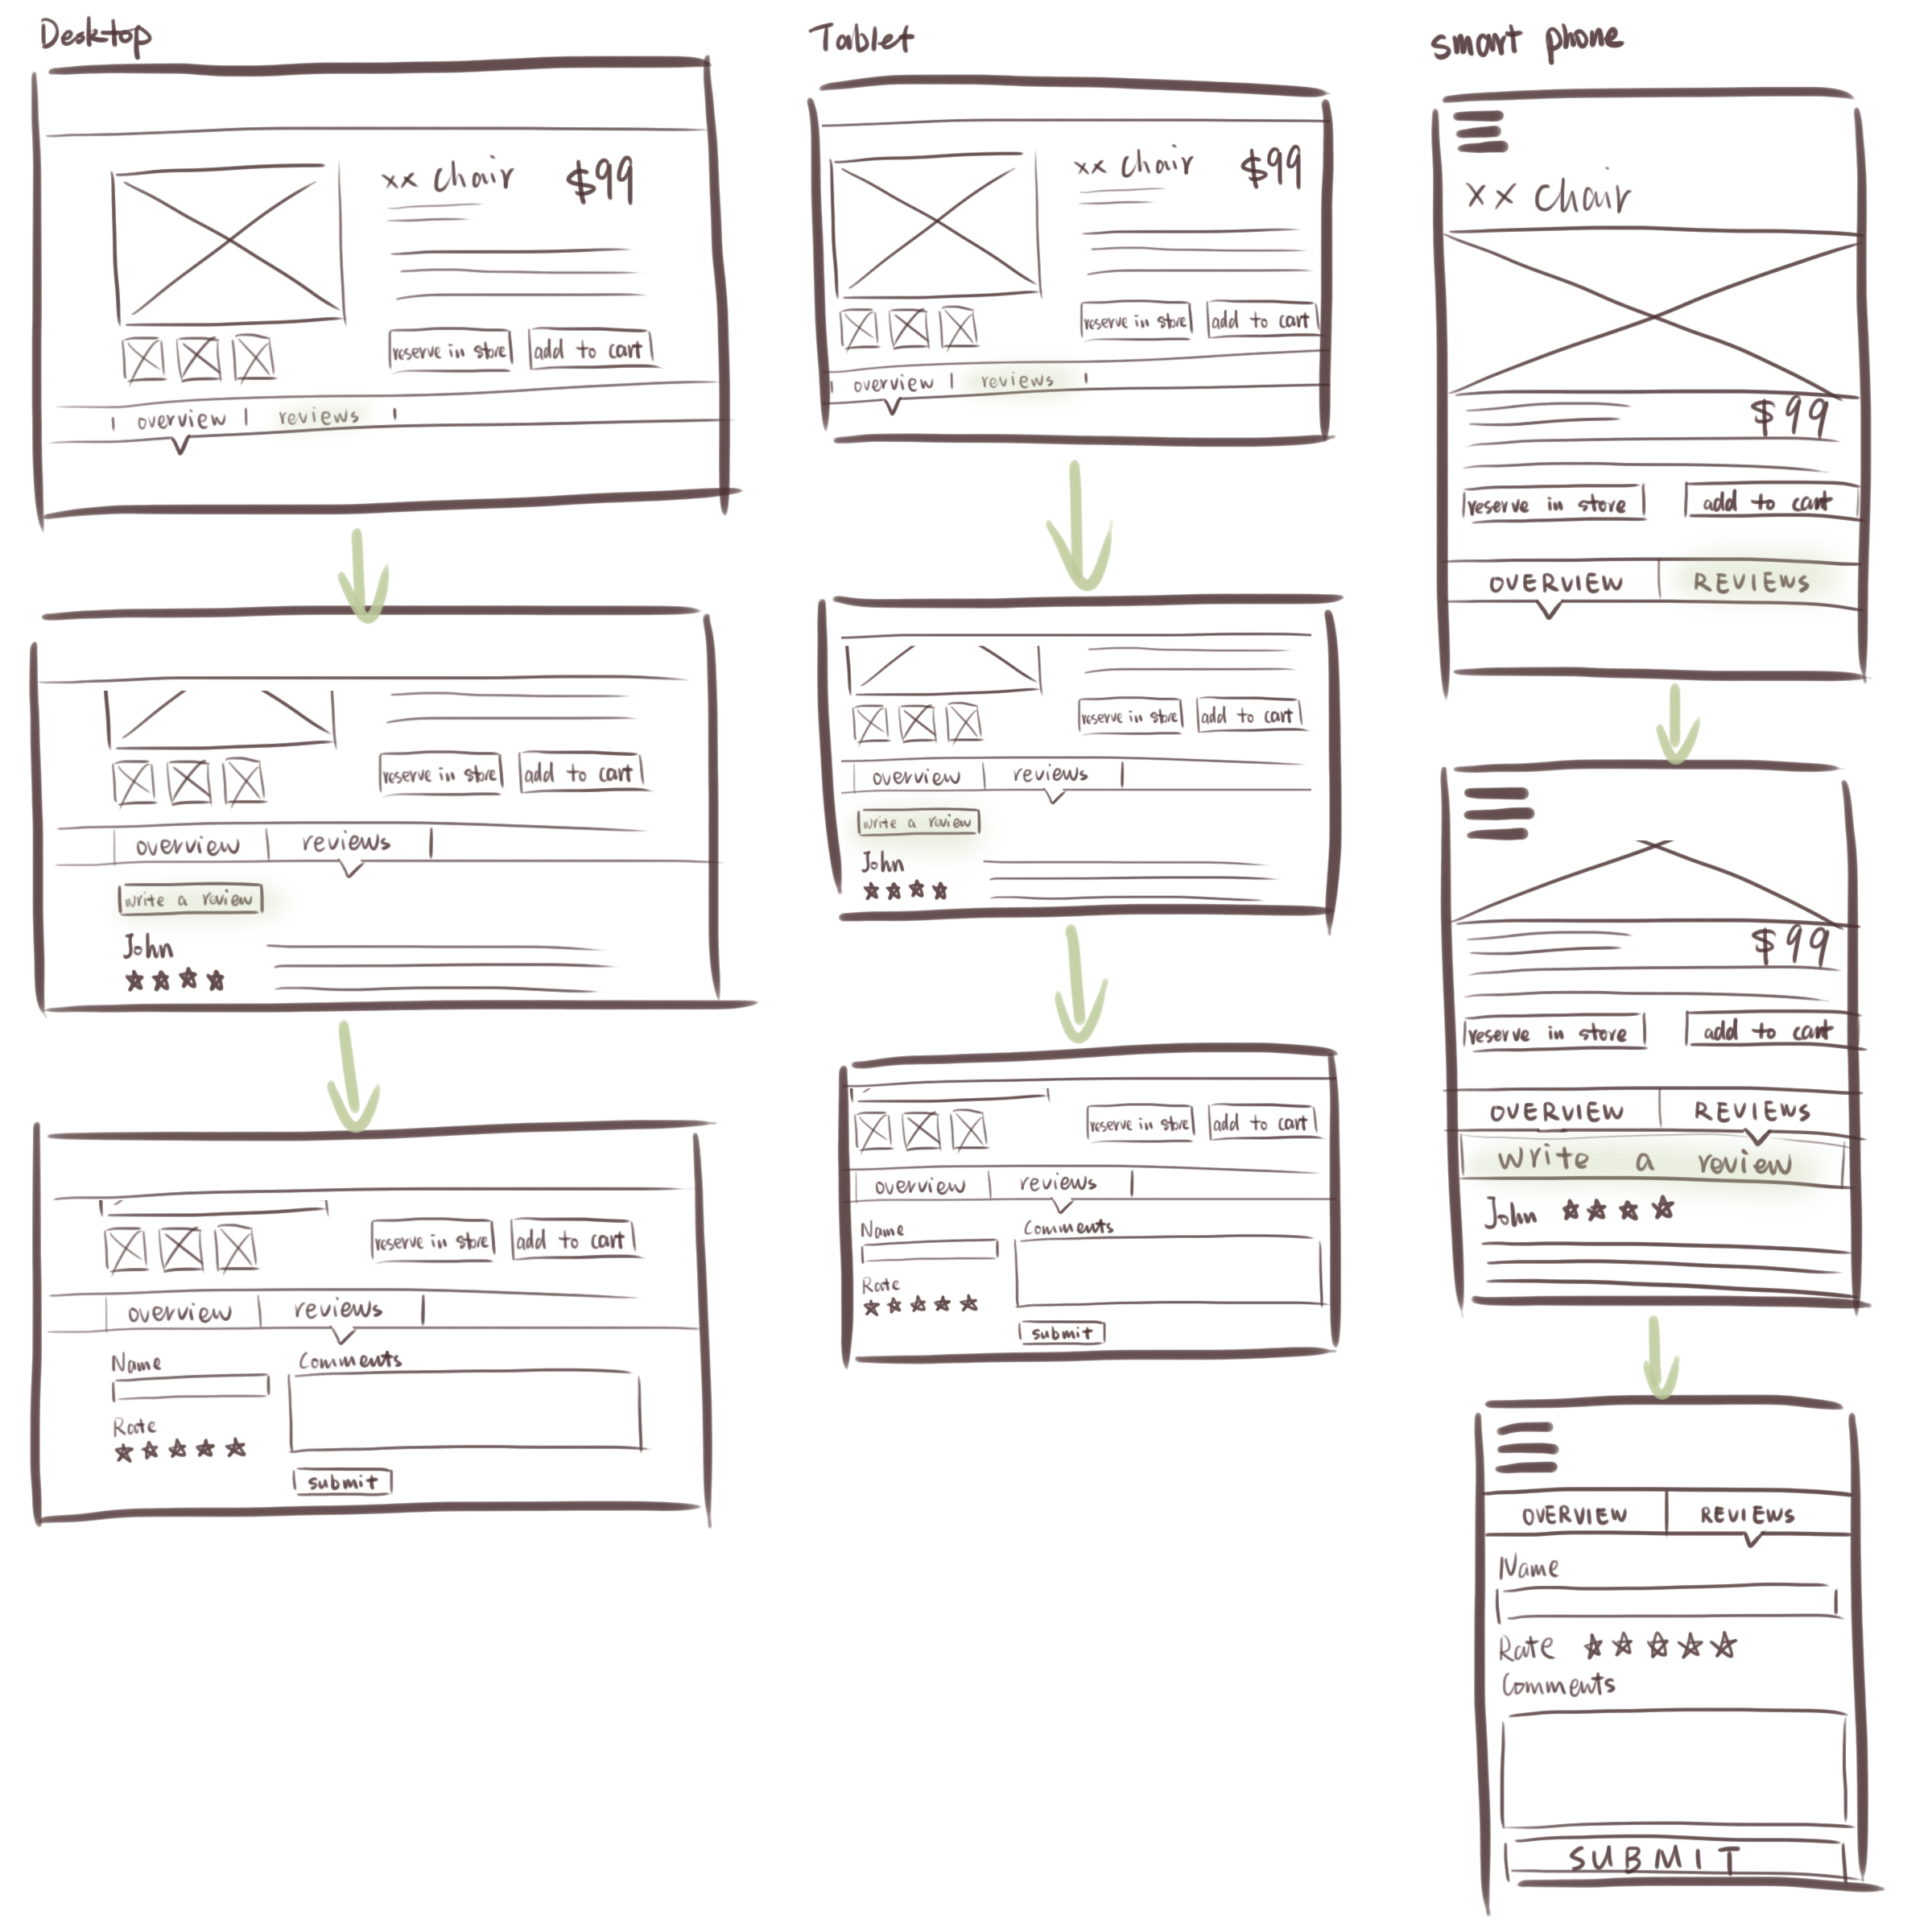 Desktop
xx chair $99
reserve in store add to cart
overview reviews
overview reviews
reserve in store add to cart
write a review
John
reserve in store add to cart
overview reviews
Name Comments
Rate
submit
Tablet
xx chair $99
reserve in store add to cart
overview reviews
reserve in store add to cart
overview reviews
write a review
John
reserve in store add to cart
overview reviews
Name Comments
Rate
submit
smart phone
xx chair
$99
reserve in store add to cart
OVERVIEW REVIEWS
$99
reserve in store add to cart
OVERVIEW REVIEWS
write a review
John
OVERVIEW REVIEWS
Name
Rate
Comments
SUBMIT